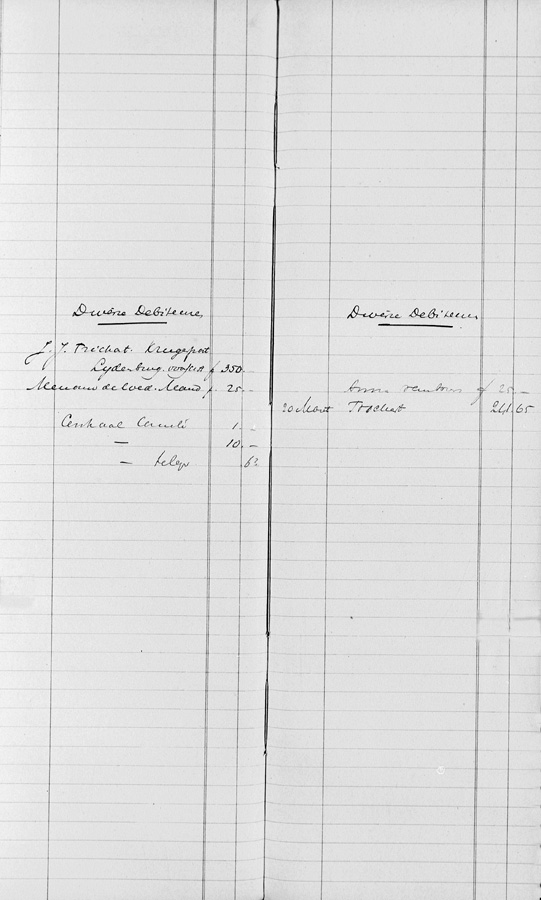 Diverse Debiteuren
J. J. Trichat. Krugerpost
Lydenburg. voorschot f 350.-
Mevrouw de Wed. f 25.-
Centraal Comité 1.-
— 10.-
— telegr 6?
Diverse Debiteuren
f 25.-
20 Maart Trichart 241.65